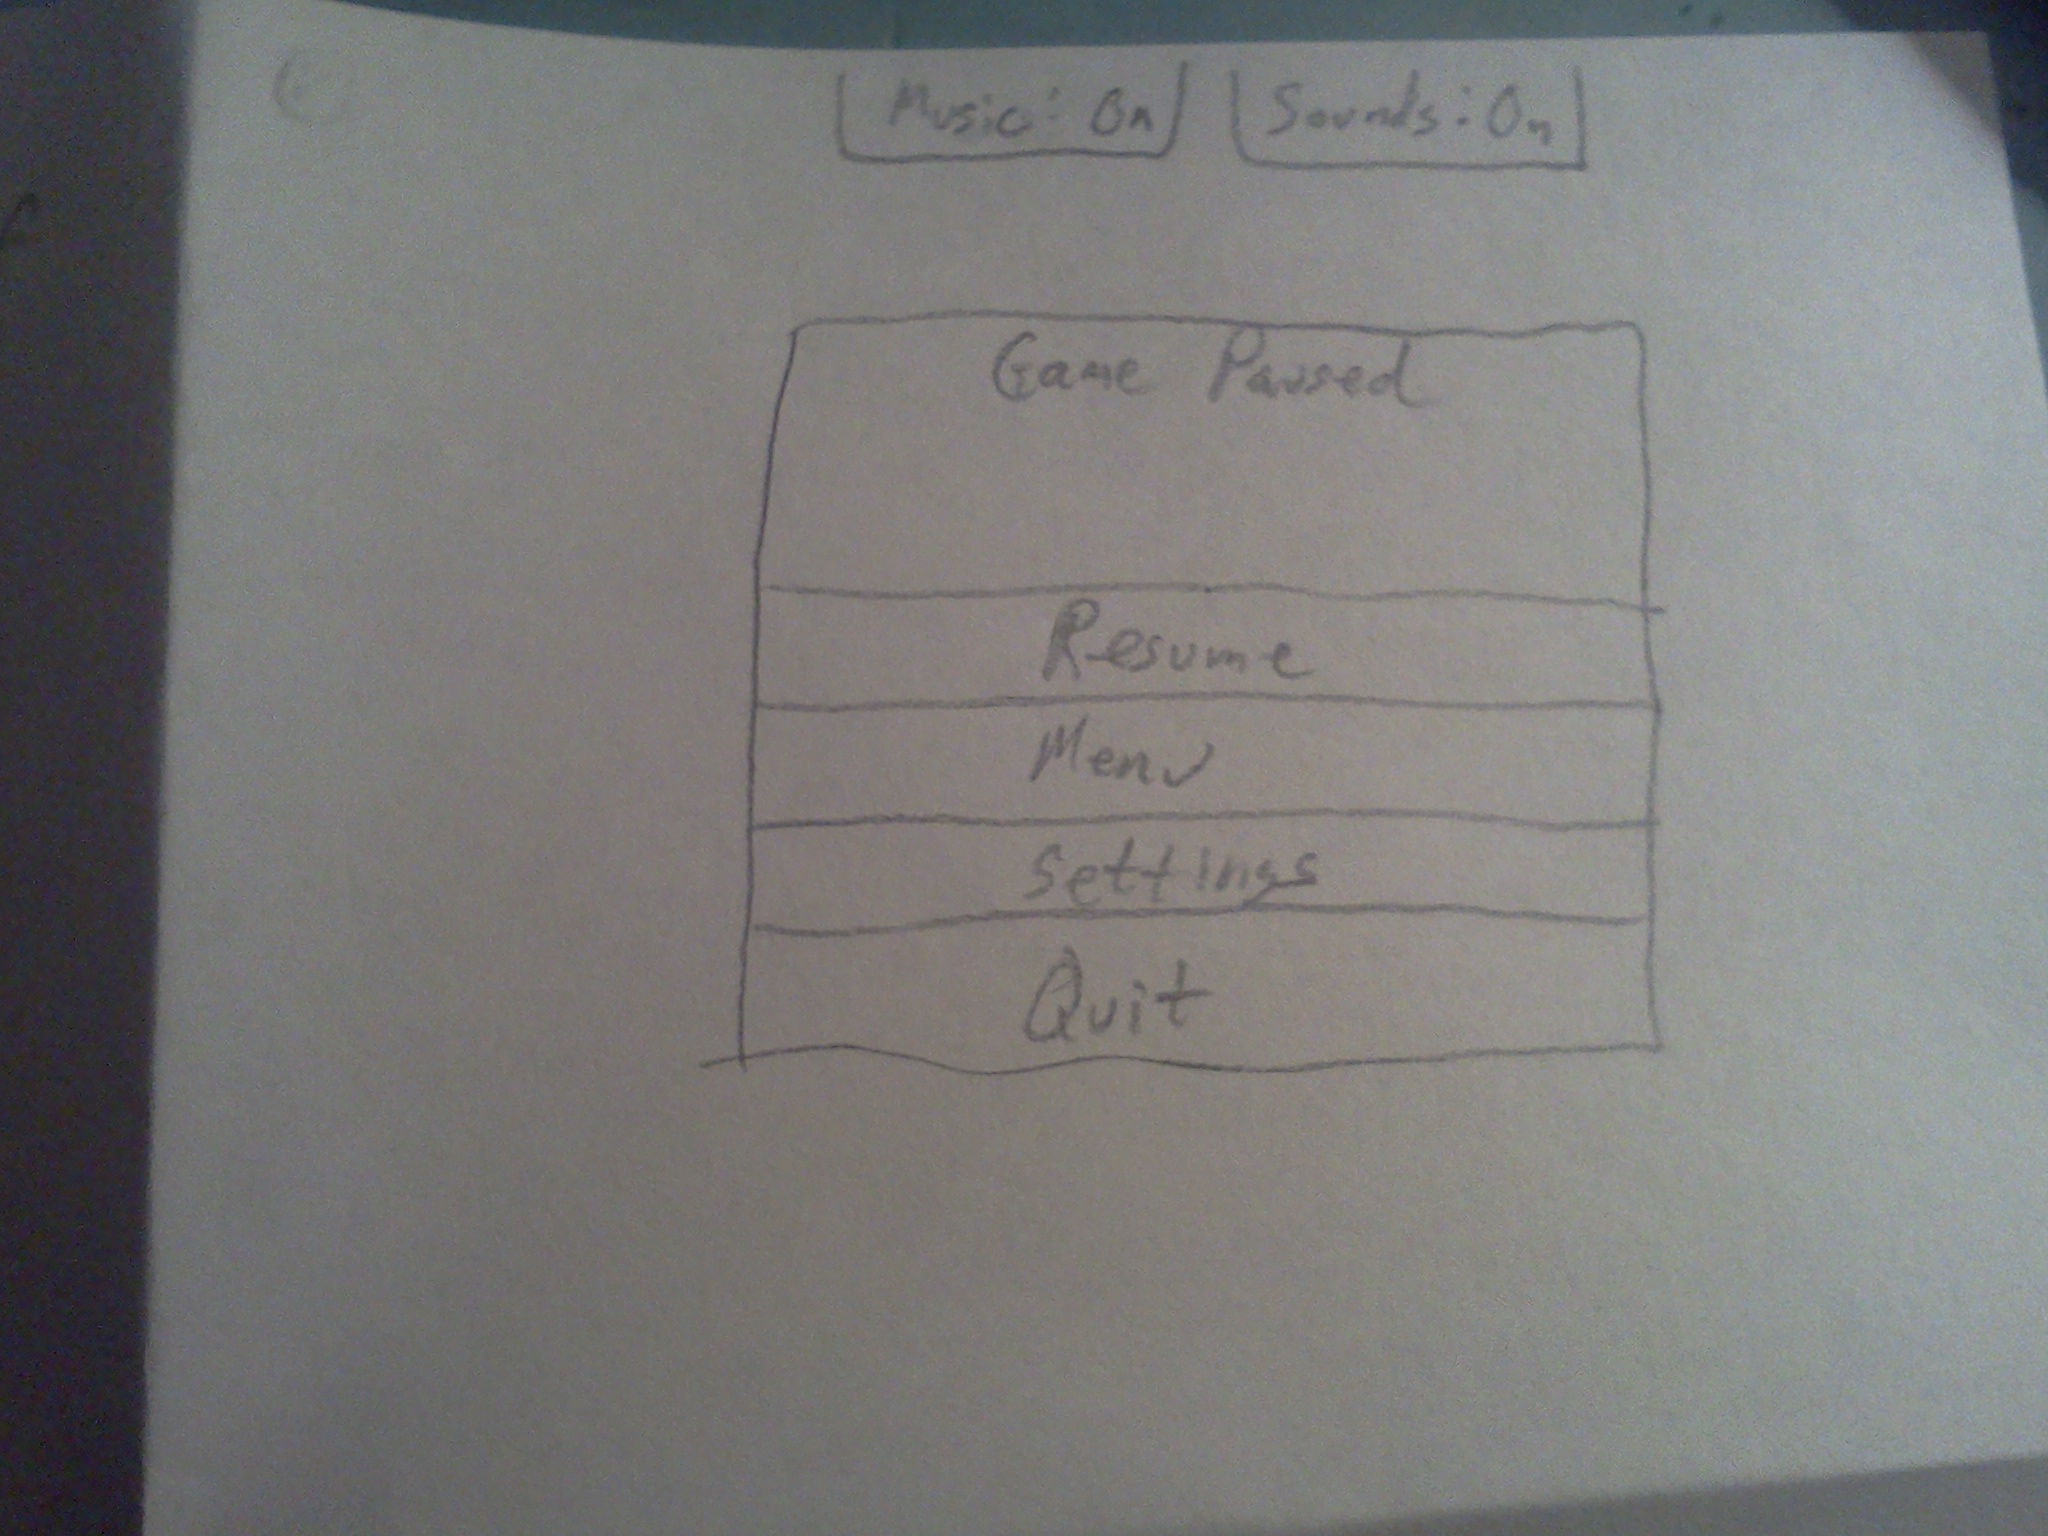 Music: On Sounds: On
Game Paused
Resume
Menu
Settings
Quit